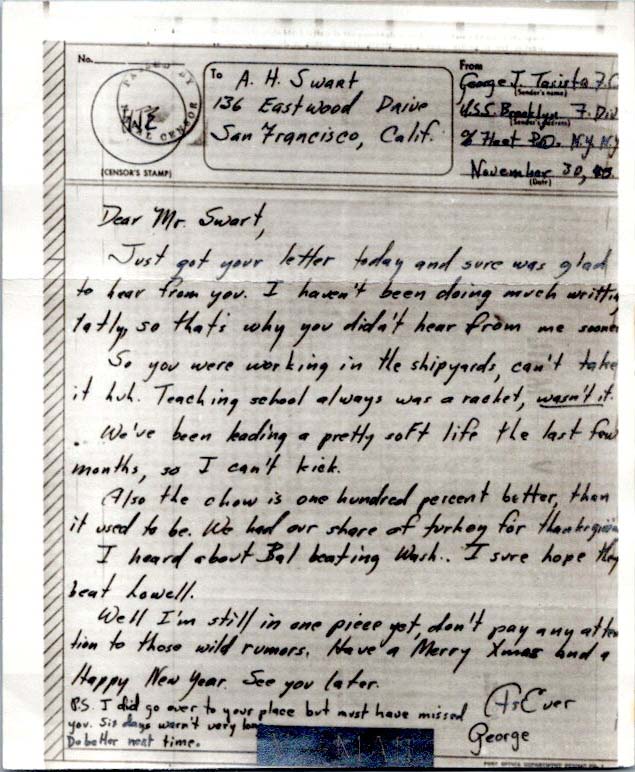 No.
PASSED BY
NAVAL CENSOR
(CENSOR'S STAMP)
To A. H. Swart
136 Eastwood Drive
San Francisco, Calif.
From
George J. F.C.
(Sender's name)
U.S.S. Brooklyn F. Div
(Sender's address)
% Fleet P.O. N.Y. N.Y
November 30,
(Date)
Dear Mr. Swart,
Just got your letter today and sure was glad
to hear from you. I haven't been doing much writing
latly, so that's why you didn't hear from me sooner
So you were working in the shipyards, can't take
it huh. Teaching school always was a racket, wasn't it.
We've been leading a pretty soft life the last few
months, so I can't kick.
Also the chow is one hundred percent better, than
it used to be. We had our share of turkey for thanksgiving
I heard about Bal beating Wash.. I sure hope they
beat Lowell.
Well I'm still in one piece yet, don't pay any atten
tion to those wild rumors. Have a Merry Xmas and a
Happy New Year. See you later.
P.S. I did go over to your place but must have missed
you. Six days wasn't very long
Do better next time.
As Ever
George
V-MAIL